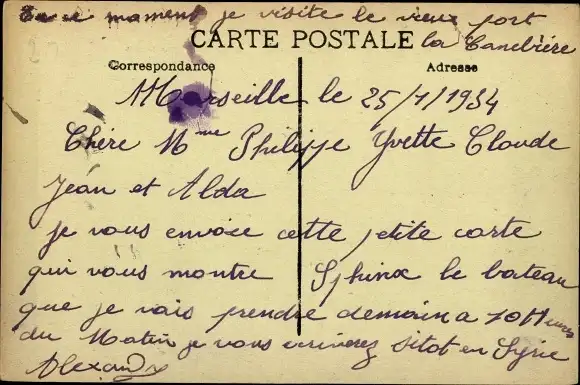 En ce moment je visite le vieux port
la Canebière
CARTE POSTALE
Correspondance
Adresse
Marseille le 25/7/1934
Chère Mme Philippe Yvette Claude
Jean et Alda
je vous envoie cette petite carte
qui vous montre Sphinx le bateau
que je vais prendre demain a 10 Heures
du Matin je vous écrirerez sitot en Syrie
Alexandre